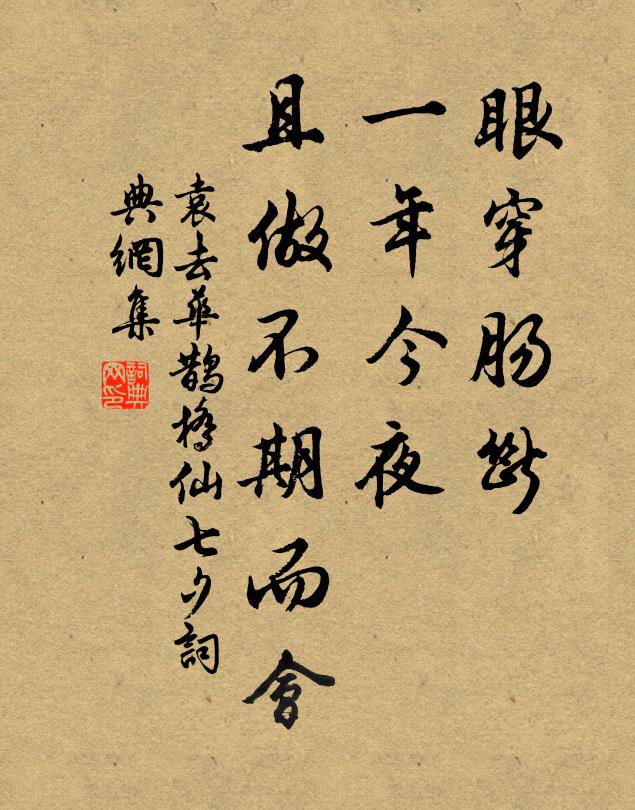 眼穿腸斷
一年今夜
且做不期而會
袁去華鵲橋仙七夕詞
典網集
詞典
网印